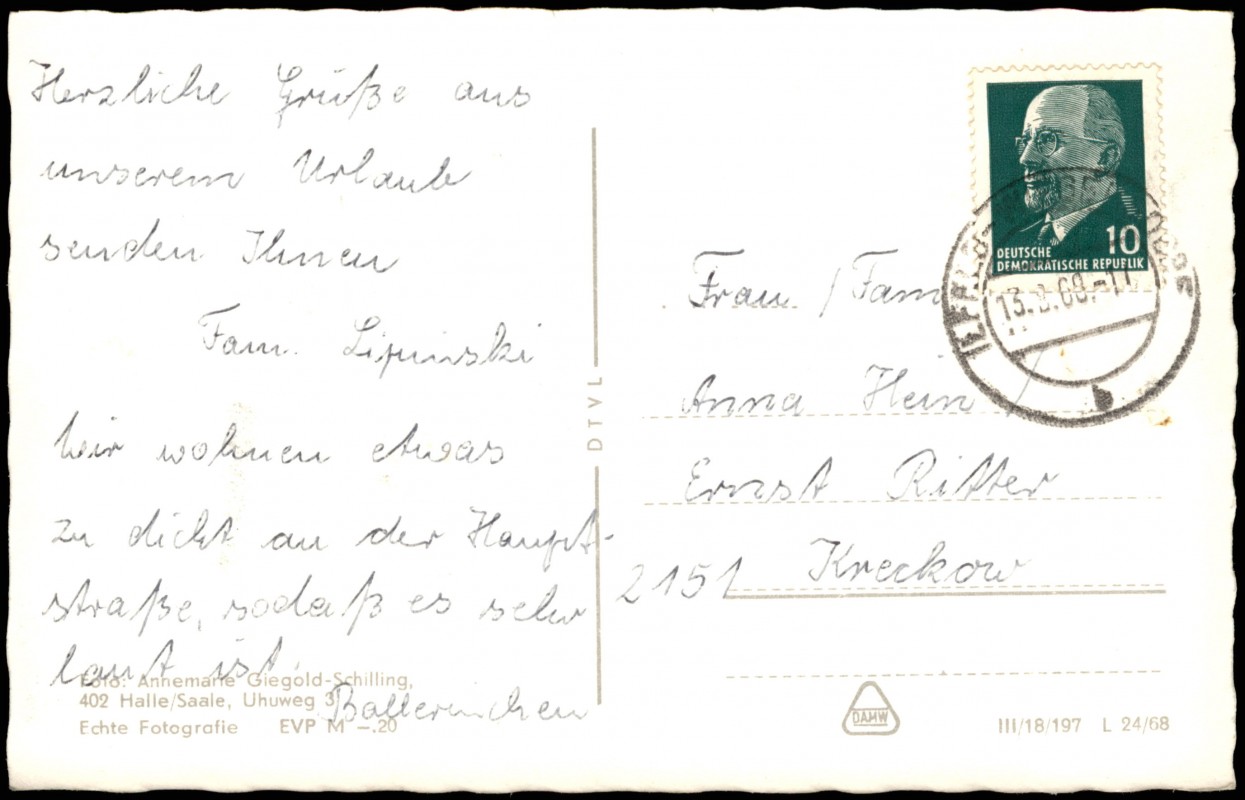 Herzliche Grüße aus
unserem Urlaub
senden Ihnen
Fam. Lipinski
Wir wohnen etwas
zu dicht an der Haupt-
straße, sodaß es sehr
laut ist.
Ballerinchen
Foto: Annemarie Giegold-Schilling,
402 Halle/Saale, Uhuweg 3
Echte Fotografie EVP M –.20
DTVL
10
DEUTSCHE
DEMOKRATISCHE REPUBLIK
Frau / Fam
Anna Hein /
Ernst Ritter
2151 Kreckow
DAMW
III/18/197 L 24/68